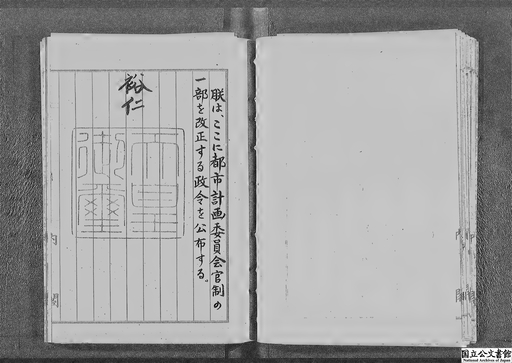 朕は、ここに都市計画委員会官制の
一部を改正する政令を公布する。
裕仁
天皇
御璽
内閣
国立公文書館
National Archives of Japan